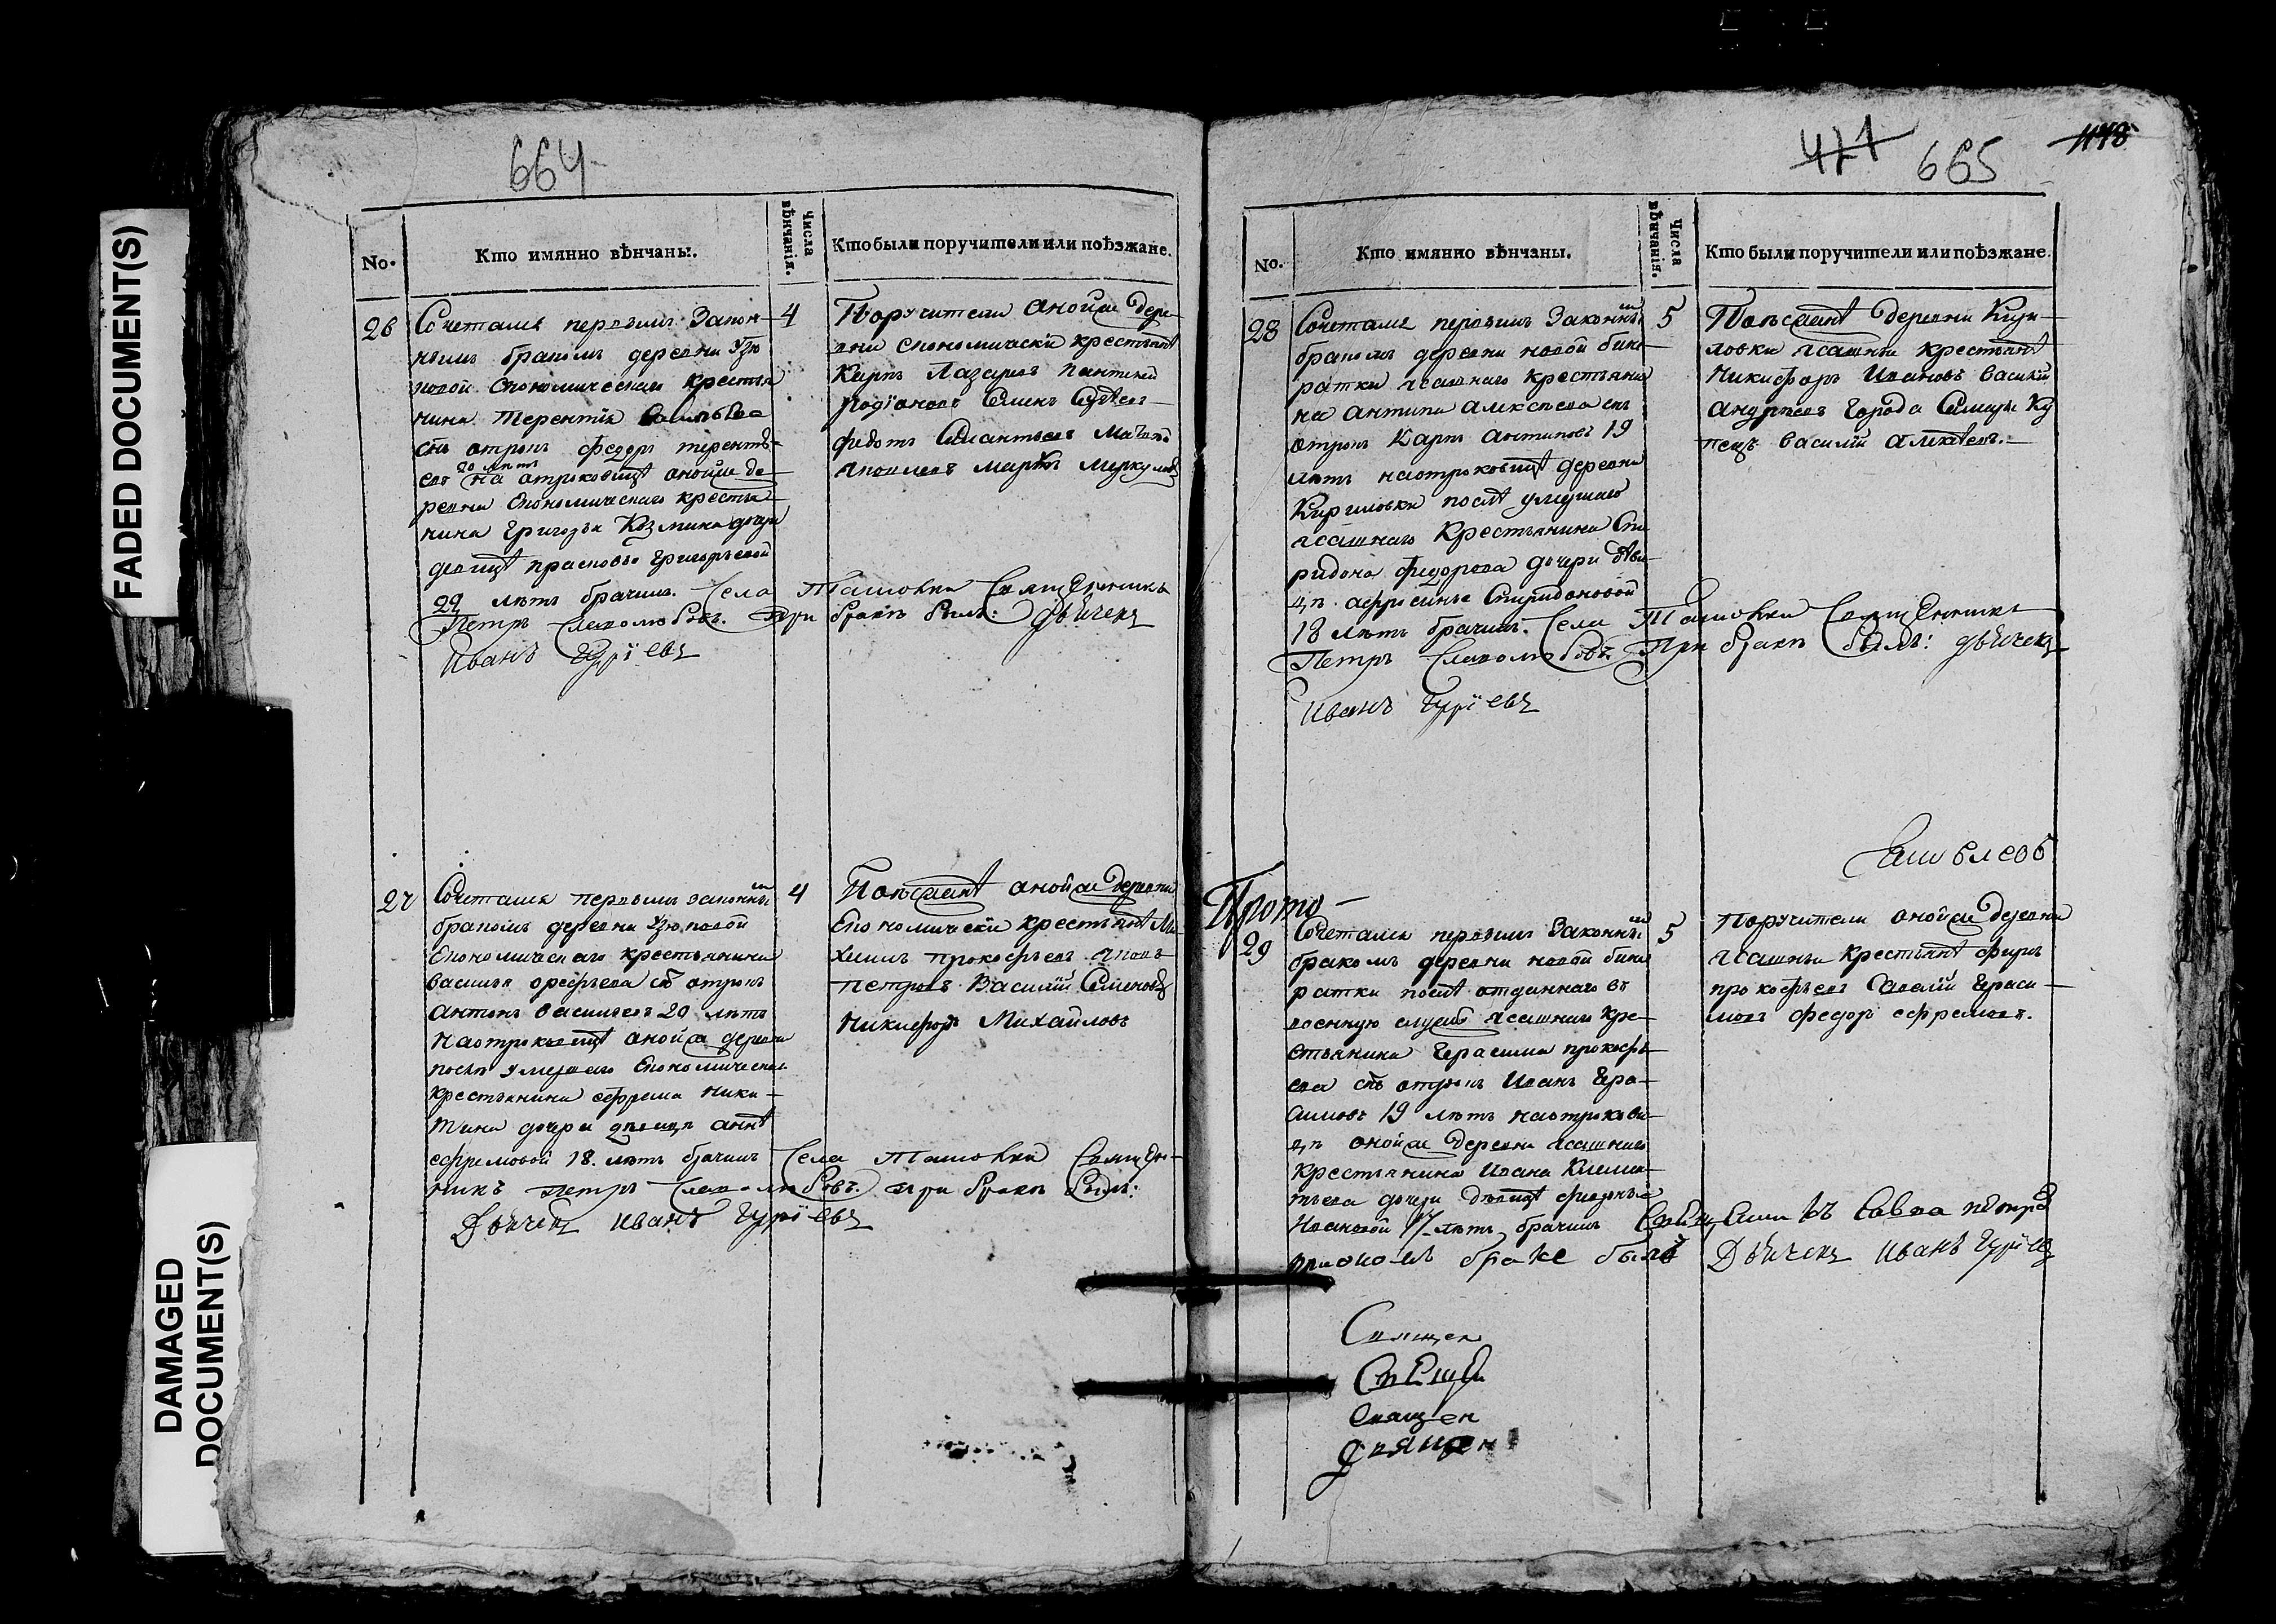 FADED DOCUMENT(S)
DAMAGED
DOCUMENT(S)
664
No.
Кто имянно вѣнчаны.
Числа
вѣнчанія.
Кто были поручители или поѣзжане.
26
Сочетался первымъ закон-
нымъ бракомъ деревни Узю
ковой економическаго крестья
нина Терентія Васильева
снъ отрокъ федоръ терентье
евъ 20 лѣтъ на отроковицѣ оной же де
ревни економическаго крестья
нина Григорья Козмина дочери
девицѣ прасковьѣ Григорьевой
22 лѣтъ брачилъ. Села Ташовки Священникъ
Петръ Славолюбовъ. При бракѣ былъ: дьячекъ
Иванъ Гурїевъ
4
Поручители оной же дере-
вни економическїи крестьянѣ
Карпъ Лазаревъ пантелей
родїоновъ Семенъ
федотъ
яковлевъ маркъ меркуловъ
27
Сочетался первымъ законны
мъ
бракомъ деревни Узюковой
економическаго крестьянина
василья арефьева снъ отрокъ
антонъ васильевъ 20 лѣтъ
наотроковицѣ оной же деревни
послѣ умершаго економическаго
крестьянина ефрема ники-
тина дочери девицѣ аннѣ
ефремовой 18. лѣтъ брачилъ Села Ташовки Священ-
никъ петръ Славолюбовъ. при бракѣ былъ:
Дьячекъ иванъ Гурїевъ
4
Поѣзжанѣ оной же деревни
економическїи крестьянѣ Ми
хаилъ прокофьевъ яковъ
петровъ Василїй Семеновъ
Никифоръ Михайловъ
471
665
448
No.
Кто имянно вѣнчаны.
Числа
вѣнчанія.
Кто были поручители или поѣзжане.
28
Сочетался первымъ законны
мъ
бракомъ деревни новой бина
ратки ясашнаго крестьяни
на антипа алексѣева снъ
отрокъ Карпъ антиповъ 19
лѣтъ наотроковицѣ деревни
Кириловки послѣ умершаго
ясашнаго Крестьянина Спи
ридона федорова дочери дѣви
цѣ афросинье Спиридоновой
18 лѣтъ брачилъ. Села Ташовки Священникъ
Петръ Славолюбовъ. При бракѣ былъ: дьячекъ
иванъ Гурїевъ
5
Поѣзжанѣ деревни Кири-
ловки ясашныя крестьянѣ
Никифоръ Ивановъ василїй
андреевъ города Самары Ку
пецъ василїй алексѣевъ.
Яковлевъ
Прото-
29
Сочетался первымъ законны
мъ
бракомъ деревни новой бина
ратки послѣ отданнаго въ
военную службу ясашнаго кре-
стьянина Герасима прокофь
ева снъ отрокъ Иванъ Гера-
симовъ 19 лѣтъ наотрокови-
цѣ оной же деревни ясашнаго
крестьянина Ивана Климен-
тьева дочери дѣвицѣ
Ивановой 17 лѣтъ брачилъ Савва петровъ
приономъ браке былъ Дьячекъ иванъ Гурїевъ
5
Поручители оной же деревни
ясашныя крестьянѣ фирсъ
прокофьевъ Савелїй Гераси-
мовъ федоръ ефремовъ.
Священ
Священ
Священ
Священ